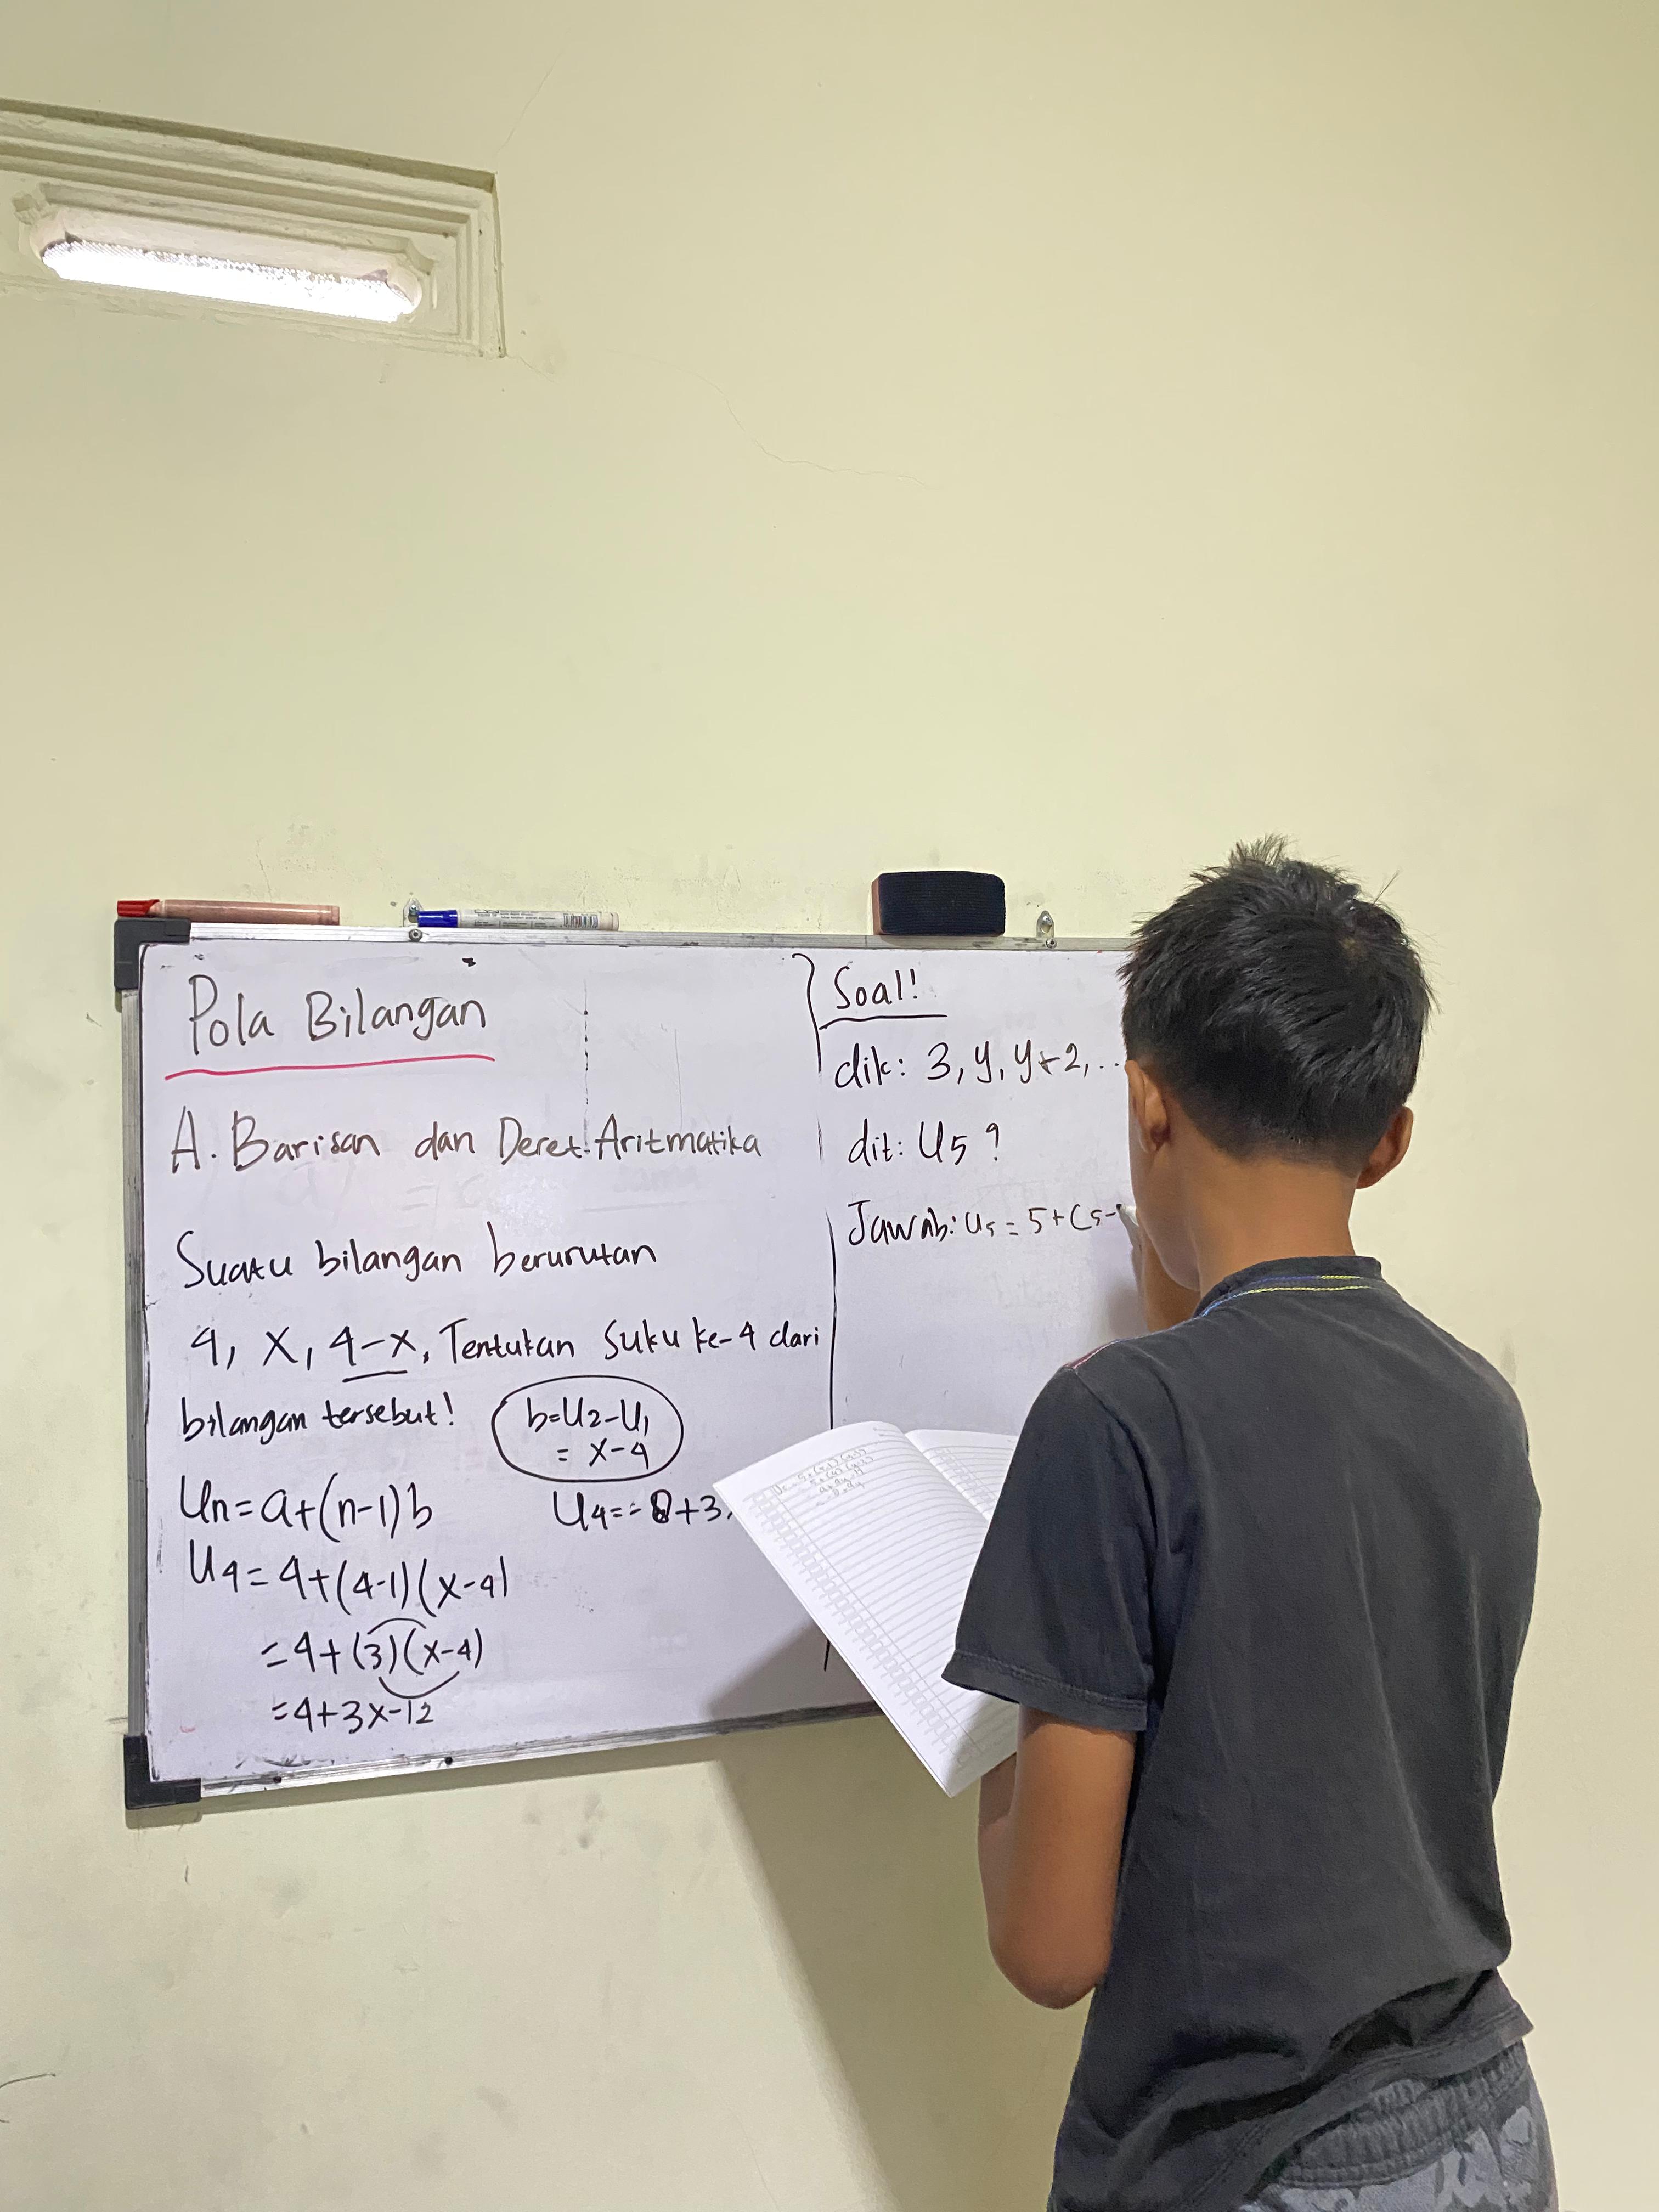 Pola Bilangan
A. Barisan dan Deret Aritmatika
Suatu bilangan berurutan
4, x, 4-x, Tentukan Suku ke-4 dari
bilangan tersebut!
b=U2-U1
= x-4
Un=a+(n-1)b
U4=-8+3
U4=4+(4-1)(x-4)
=4+(3)(x-4)
=4+3x-12
Soal!
dik: 3, y, y+2, ..
dit: U5 ?
Jawab: U5 = 5+(5-